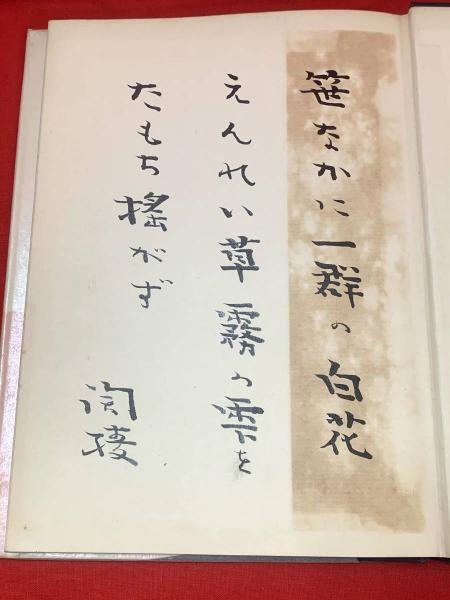 笹なかに一群の白花
えんれい草霧の雫を
たもち搖がず